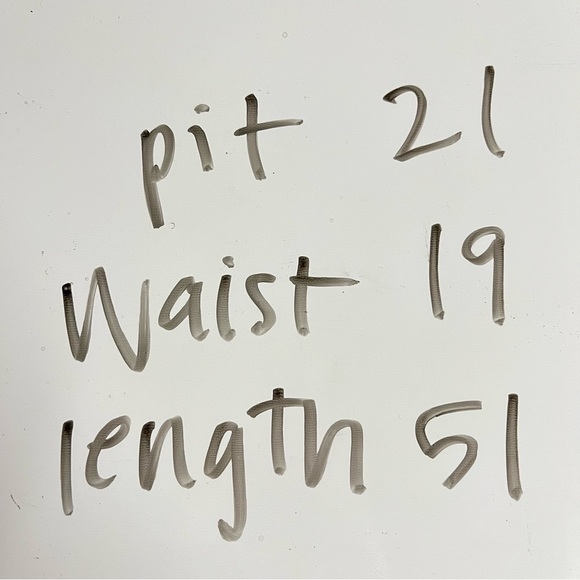 pit 21
Waist 19
length 51